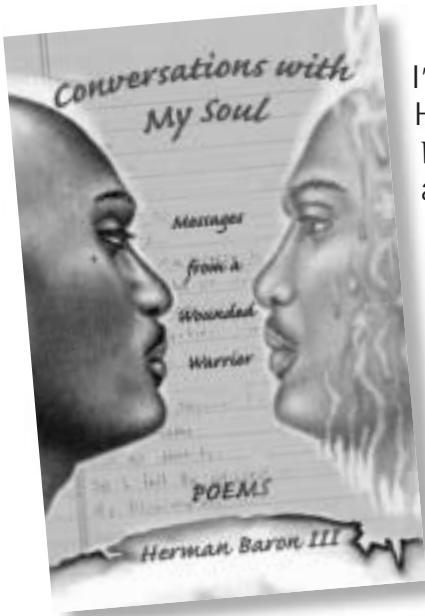 Conversations with
My Soul
Messages
from a
Wounded
Warrior
POEMS
Herman Baron III
I'
H
a